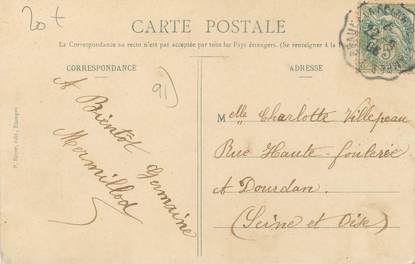 20 t
CARTE POSTALE
La Correspondance au recto n'est pas acceptée par tous les Pays étrangers. (Se renseigner à la
CORRESPONDANCE
ADRESSE
91
A Bientôt
Germaine
Mermillod
Melle Charlotte Villepeau
Rue Haute-foulerie
A Dourdan
(Seine et Oise)